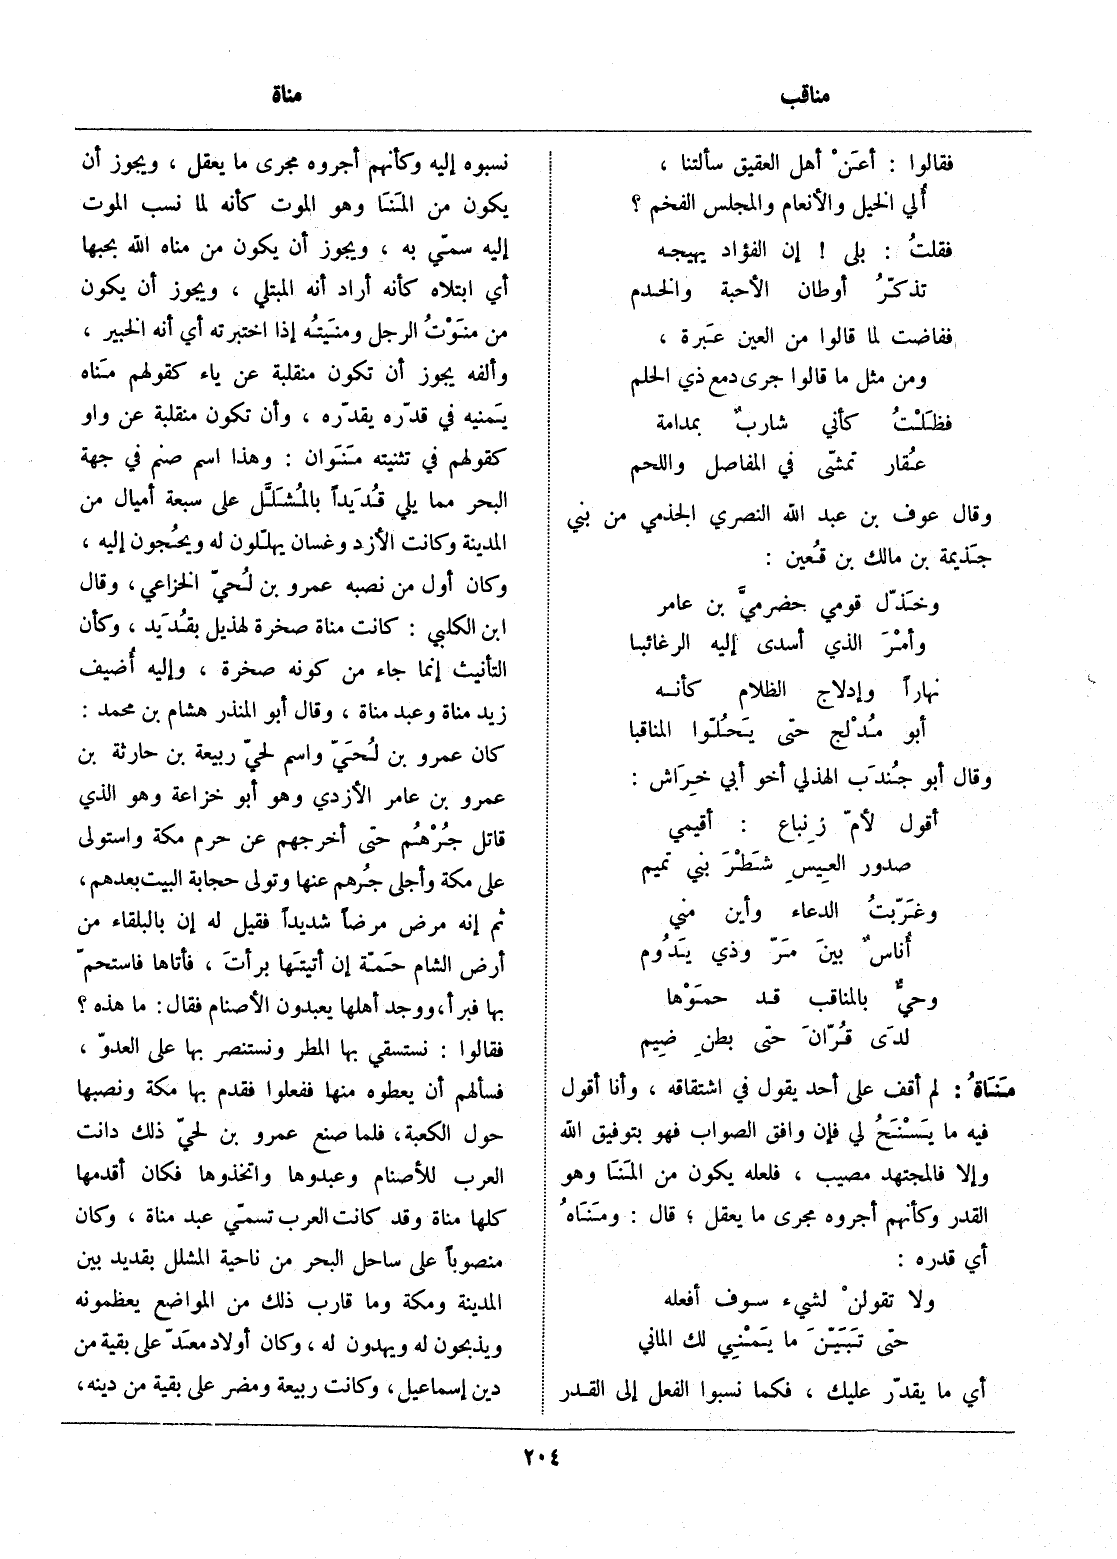 مناقب
مناة
فقالوا : أعَنْ أهل العقيق سألتنا ،
أُلي الخيل والأنعام والمجلس الفخم ؟
فقلتُ : بلى ! إن الفؤاد يهيجه
تذكّرُ أوطان الأحبة والخدم
ففاضت لما قالوا من العين عَبرة ،
ومن مثل ما قالوا جرى دمع ذي الحلم
فظَلْتُ كأني شاربٌ بمدامة
عُقار تمشّى في المفاصل واللحم
وقال عوف بن عبد الله النصري الجذمي من بني
جَذيمة بن مالك بن قُعين :
وخَذّل قومي حضرميَّ بن عامر
وأمْرَ الذي أسدى إليه الرغائبا
نهاراً وإدلاج الظلام كأنه
أبو مُدْلج حتى يَحُلّوا المناقبا
وقال أبو جُندَب الهذلي أخو أبي خِرَاش :
أقول لأمّ زِنباع : أقيمي
صدور العِيسِ شَطْرَ بني تميم
وغَرّبتُ الدعاء وأين مني
أُناسٌ بينَ مَرّ وذي يَدُوم
وحيٌّ بالمناقب قد حمَوْها
لدَى قُرّانَ حتى بطنِ ضِيم
مَنَاةُ : لم أقف على أحد يقول في اشتقاقه ، وأنا أقول
فيه ما يَسْنَحُ لي فإن وافق الصواب فهو بتوفيق الله
وإلا فالمجتهد مصيب ، فلعله يكون من المَنَا وهو
القدر وكأنهم أجروه مجرى ما يعقل ؛ قال : ومَنَاهُ
أي قدره :
ولا تقولنْ لشيء سوف أفعله
حتى تَبَيّنَ ما يَمْنِي لك الماني
أي ما يقدّر عليك ، فكما نسبوا الفعل إلى القدر
نسبوه إليه وكأنهم أجروه مجرى ما يعقل ، ويجوز أن
يكون من المَنَا وهو الموت كأنه لما نسب الموت
إليه سمّي به ، ويجوز أن يكون من مناه الله بحبها
أي ابتلاه كأنه أراد أنه المبتلي ، ويجوز أن يكون
من منَوْتُ الرجل ومنَيتُه إذا اختبرته أي أنه الخبير ،
وألفه يجوز أن تكون منقلبة عن ياء كقولهم مَناه
يَمنيه في قدّره يقدّره ، وأن تكون منقلبة عن واو
كقولهم في تثنيته مَنَوان : وهذا اسم صنم في جهة
البحر مما يلي قُدَيداً بالمُشَلَّل على سبعة أميال من
المدينة وكانت الأزد وغسان يهلّلون له ويحُجون إليه ،
وكان أول من نصبه عمرو بن لُحيّ الخزاعي ، وقال
ابن الكلبي : كانت مناة صخرة لهذيل بقُدَيد ، وكأن
التأنيث إنما جاء من كونه صخرة ، وإليه أُضيف
زيد مناة وعبد مناة ، وقال أبو المنذر هشام بن محمد :
كان عمرو بن لُحَيّ واسم لحيّ ربيعة بن حارثة بن
عمرو بن عامر الأزدي وهو أبو خزاعة وهو الذي
قاتل جُرْهُم حتى أخرجهم عن حرم مكة واستولى
على مكة وأجلى جُرهم عنها وتولى حجابة البيت بعدهم ،
ثم إنه مرض مرضاً شديداً فقيل له إن بالبلقاء من
أرض الشام حَمّة إن أتيتَها برأتَ ، فأتاها فاستحمّ
بها فبرأ ، ووجد أهلها يعبدون الأصنام فقال : ما هذه ؟
فقالوا : نستسقي بها المطر ونستنصر بها على العدوّ ،
فسألهم أن يعطوه منها ففعلوا فقدم بها مكة ونصبها
حول الكعبة ، فلما صنع عمرو بن لحيّ ذلك دانت
العرب للأصنام وعبدوها واتخذوها فكان أقدمها
كلها مناة وقد كانت العرب تسمّي عبد مناة ، وكان
منصوباً على ساحل البحر من ناحية المشلل بقديد بين
المدينة ومكة وما قارب ذلك من المواضع يعظمونه
ويذبحون له ويهدون له ، وكان أولاد معَدّ على بقية من
دين إسماعيل ، وكانت ربيعة ومضر على بقية من دينه ،
٢٠٤